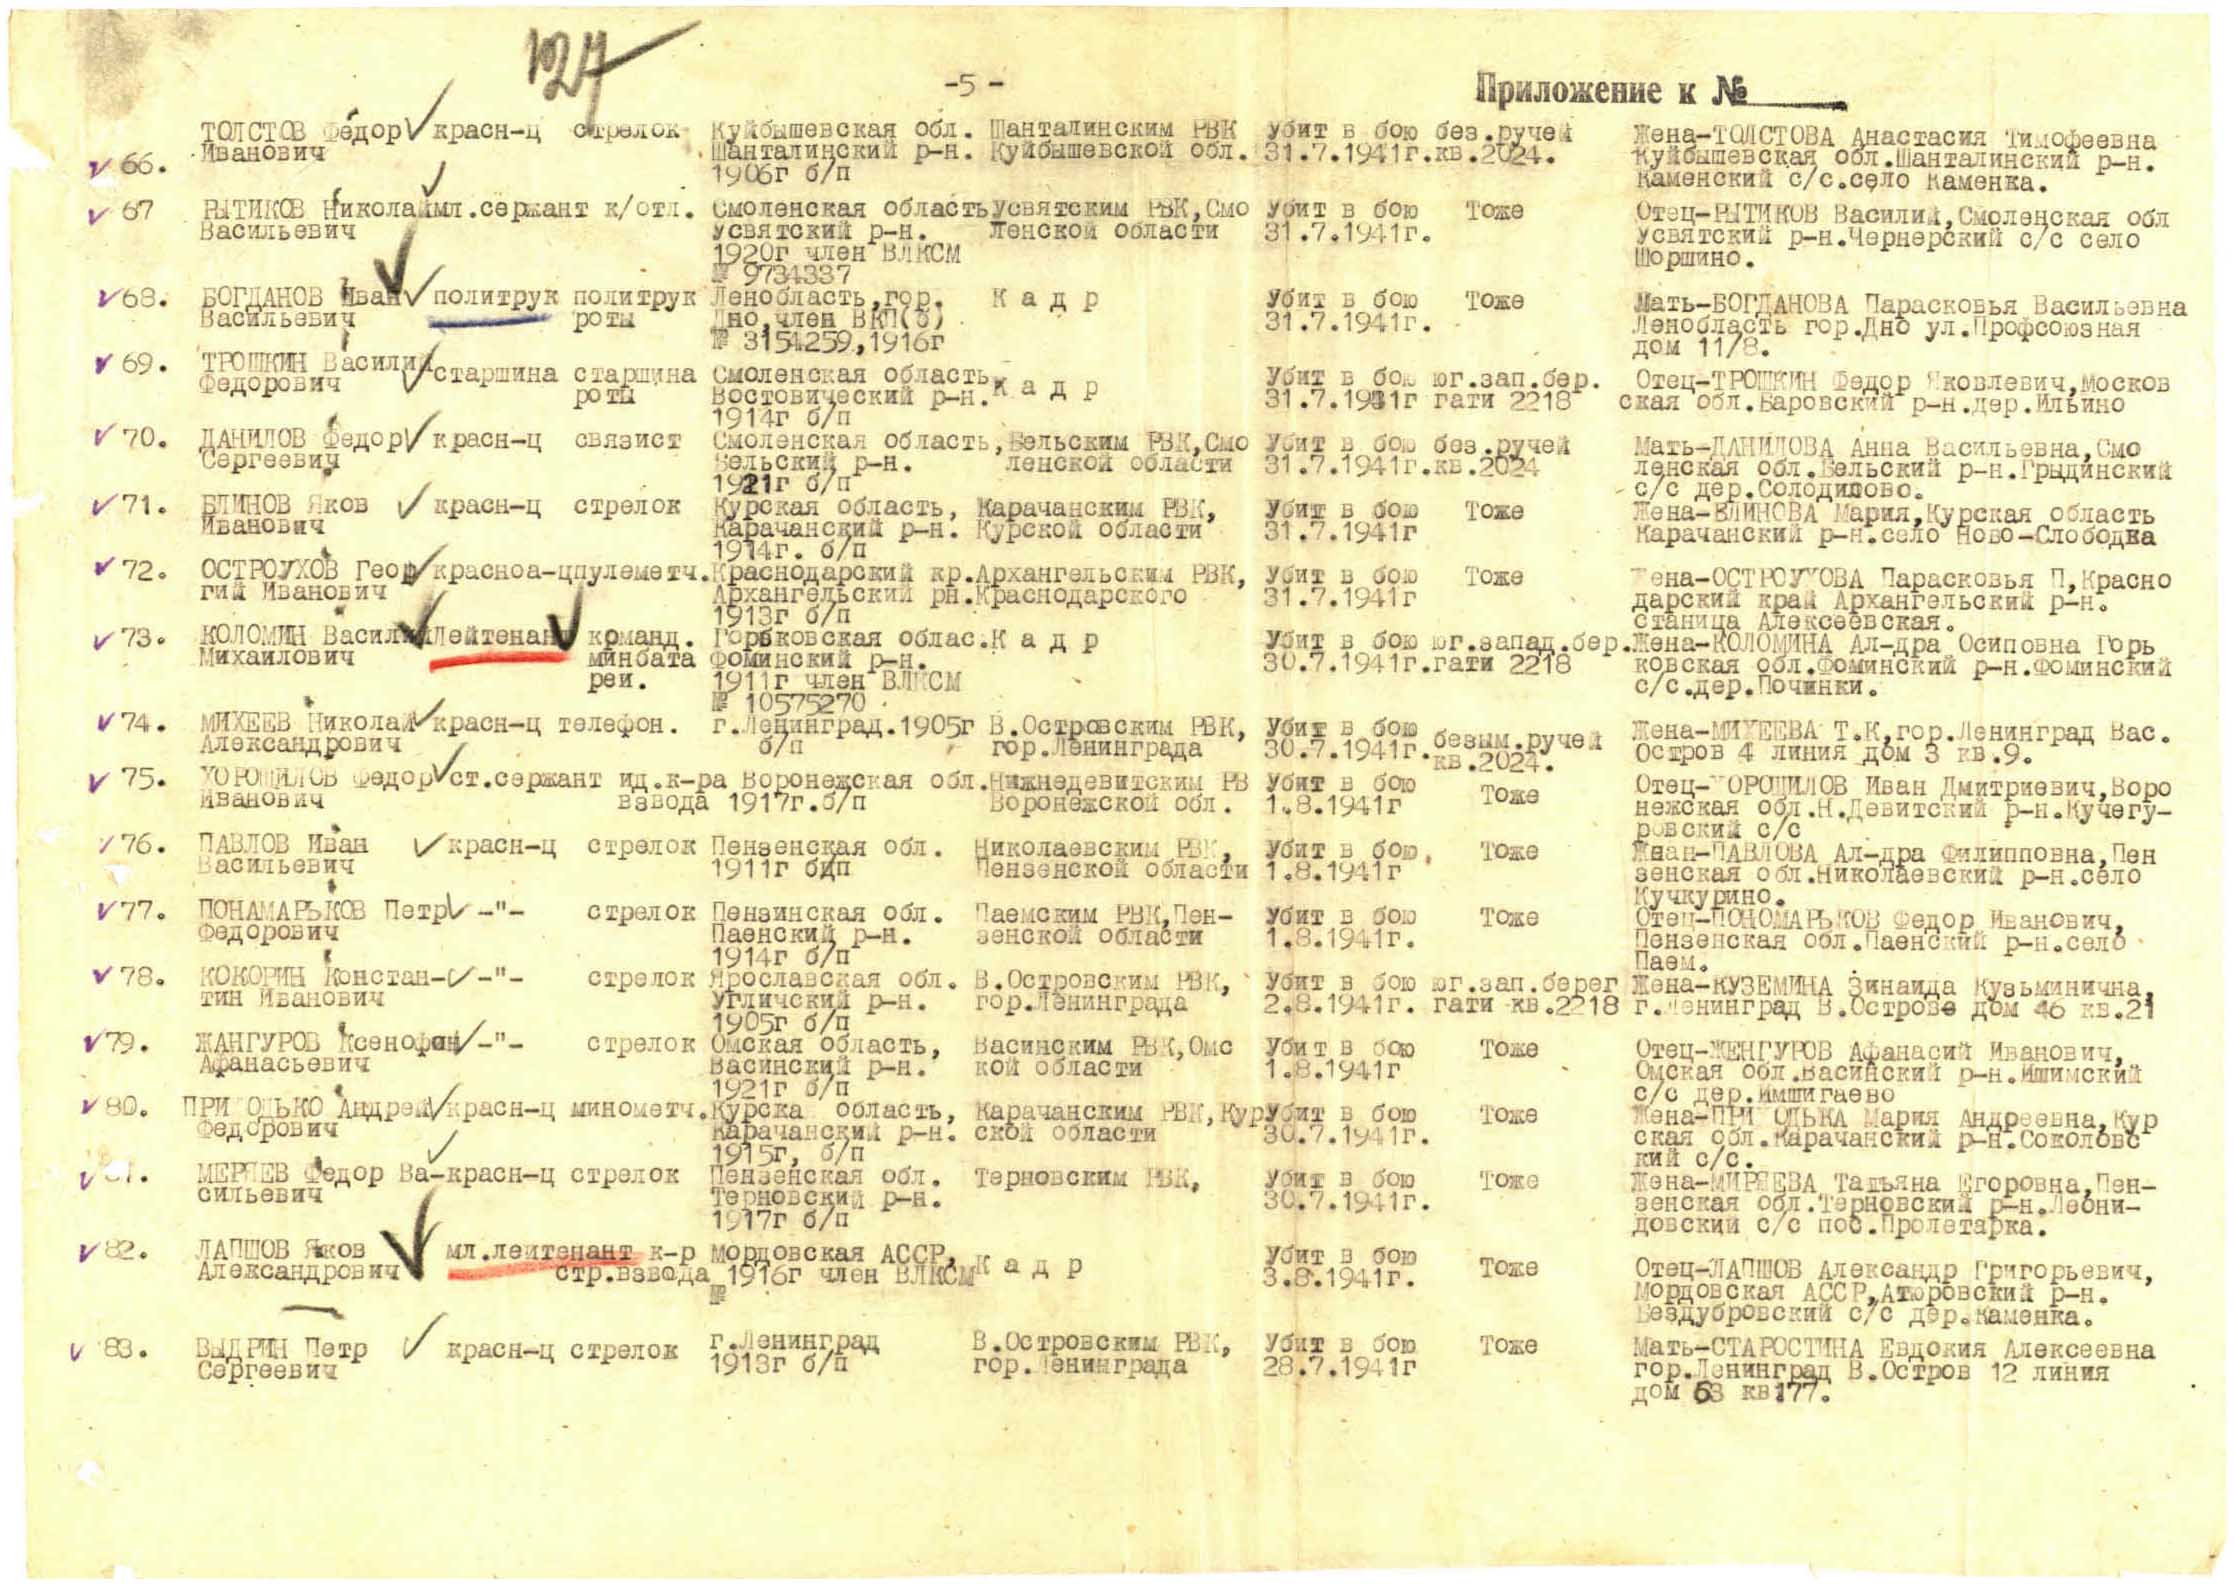 127
-5-
Приложение к №
66. ТОЛСТОВ Федор красн-ц стрелок Куйбышевская обл. Шанталинским РВК Убит в бою без.ручей Жена-ТОЛСТОВА Анастасия Тимофеевна
Иванович Шанталинский р-н. Куйбышевской обл. 31.7.1941г.кв.2024. Куйбышевская обл.Шанталинский р-н.
1906г б/п Каменский с/с.село Каменка.
67 РЫТИКОВ Николай мл.сержант к/отл. Смоленская область Усвятским РВК,Смо Убит в бою Тоже Отец-РЫТИКОВ Василий,Смоленская обл
Васильевич Усвятский р-н. ленской области 31.7.1941г. Усвятский р-н.Чернерский с/с село
1920г член ВЛКСМ Шоршино.
№ 9734337
68. БОГДАНОВ Иван политрук политрук Ленобласть,гор. К а д р Убит в бою Тоже Мать-БОГДАНОВА Парасковья Васильевна
Васильевич роты Дно,член ВКП(б) 31.7.1941г. Ленобласть гор.Дно ул.Профсоюзная
№ 3154259,1916г дом 11/8.
69. ТРОШКИН Василий старшина старшина Смоленская область, К а д р Убит в бою юг.зап.бер. Отец-ТРОШКИН Федор Яковлевич,Москов
Федорович роты Востовический р-н. 31.7.1931г гати 2218 ская обл.Баровский р-н.дер.Ильино
1914г б/п
70. ДАНИЛОВ Федор красн-ц связист Смоленская область, Бельским РВК,Смо Убит в бою без.ручей Мать-ДАНИЛОВА Анна Васильевна,Смо
Сергеевич Бельский р-н. ленской области 31.7.1941г.кв.2024 ленская обл.Бельский р-н.Грыдинский
1921г б/п с/с дер.Солодилово.
71. БЛИНОВ Яков красн-ц стрелок Курская область, Карачанским РВК, Убит в бою Тоже Жена-БЛИНОВА Мария,Курская область
Иванович Карачанский р-н. Курской области 31.7.1941г Карачанский р-н.село Ново-Слободка
1914г. б/п
72. ОСТРОУХОВ Геор красноа-ц пулеметч. Краснодарский кр. Архангельским РВК, Убит в бою Тоже Жена-ОСТРОУХОВА Парасковья П,Красно
гий Иванович Архангельский рн. Краснодарского 31.7.1941г дарский край Архангельский р-н.
1913г б/п станица Алексеевская.
73. КОЛОМИН Василий Лейтенант команд. Горьковская облас. К а д р Убит в бою юг.запад.бер. Жена-КОЛОМИНА Ал-дра Осиповна Горь
Михаилович минбата Фоминский р-н. 30.7.1941г.гати 2218 ковская обл.Фоминский р-н.Фоминский
реи. 1911г член ВЛКСМ с/с.дер.Починки.
№ 10575270
74. МИХЕЕВ Николай красн-ц телефон. г.Ленинград.1905г В.Островским РВК, Убит в бою безым.ручей Жена-МИХЕЕВА Т.К,гор.Ленинград Вас.
Александрович б/п гор.Ленинграда 30.7.1941г. кв.2024. Остров 4 линия дом 3 кв.9.
75. ХОРОШИЛОВ Федор ст.сержант ид.к-ра Воронежская обл. Нижнедевитским РВ Убит в бою Тоже Отец-ХОРОШИЛОВ Иван Дмитриевич,Воро
Иванович взвода 1917г.б/п Воронежской обл. 1.8.1941г нежская обл.Н.Девитский р-н.Кучегу-
ровский с/с
76. ПАВЛОВ Иван красн-ц стрелок Пензенская обл. Николаевским РВК, Убит в бою, Тоже Жнан-ПАВЛОВА Ал-дра Филипповна,Пен
Васильевич 1911г б/п Пензенской области 1.8.1941г зенская обл.Николаевский р-н.село
Кучкурино.
77. ПОНАМАРЬКОВ Петр -"- стрелок Пензинская обл. Паемским РВК,Пен- Убит в бою Тоже Отец-ПОНОМАРЬКОВ Федор Иванович,
Федорович Паенский р-н. зенской области 1.8.1941г. Пензенская обл.Паенский р-н.село
1914г б/п Паем.
78. КОКОРИН Констан- -"- стрелок Ярославская обл. В.Островским РВК, Убит в бою юг.зап.берег Жена-КУЗЕМИНА Зинаида Кузьминична,
тин Иванович Угличский р-н. гор.Ленинграда 2.8.1941г. гати кв.2218 г.Ленинград В.Острове дом 46 кв.21
1905г б/п
79. ЖАНГУРОВ Ксенофон -"- стрелок Омская область, Васинским РВК,Омс Убит в бою Тоже Отец-ЖЕНГУРОВ Афанасий Иванович,
Афанасьевич Васинский р-н. кой области 1.8.1941г Омская обл.Васинский р-н.Ишимский
1921г б/п с/с дер.Имшигаево
80. ПРИ ОДЬКО Андрей красн-ц минометч. Курска область, Карачанским РВК,Кур Убит в бою Тоже Жена-ПРИ ОДЬКА Мария Андреевна,Кур
Федорович Карачанский р-н. ской области 30.7.1941г. ская обл.Карачанский р-н.Соколовс
1915г, б/п кий с/с.
81. МЕРЯЕВ Федор Ва- красн-ц стрелок Пензенская обл. Терновским РВК, Убит в бою Тоже Жена-МИРЯЕВА Татьяна Егоровна,Пен-
сильевич Терновский р-н. 30.7.1941г. зенская обл.Терновский р-н.Леони-
1917г б/п довский с/с пос.Пролетарка.
82. ЛАПШОВ Яков мл.лейтенант к-р Мордовская АССР, К а д р Убит в бою Тоже Отец-ЛАПШОВ Александр Григорьевич,
Александрович стр.взвода 1916г член ВЛКСМ 3.8.1941г. Мордовская АССР,Атюровский р-н.
№ Бездубровский с/с дер.Каменка.
83. ВЫДРИН Петр красн-ц стрелок г.Ленинград В.Островским РВК, Убит в бою Тоже Мать-СТАРОСТИНА Евдокия Алексеевна
Сергеевич 1913г б/п гор.Ленинграда 28.7.1941г гор.Ленинград В.Остров 12 линия
дом 53 кв177.